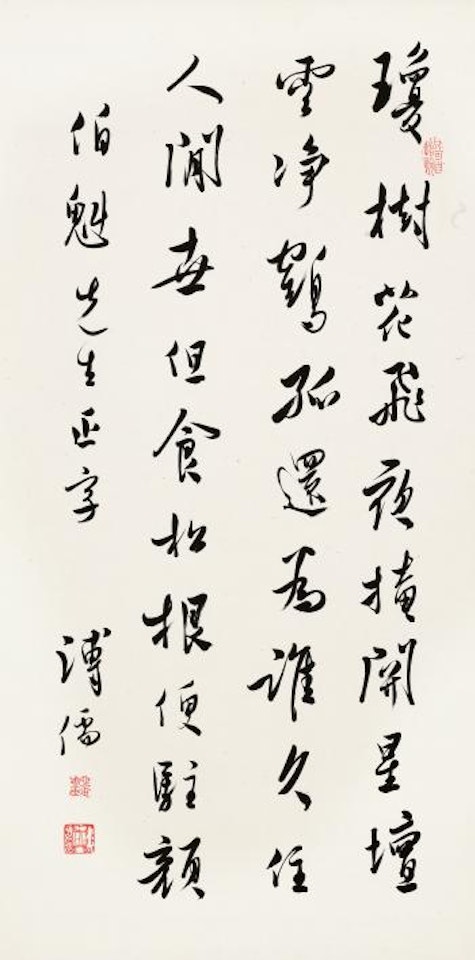 瓊樹花飛夜掩關星壇
雲淨鶴孤還為誰久住
人間世但食松根便駐顏
伯魁先生正字
溥儒